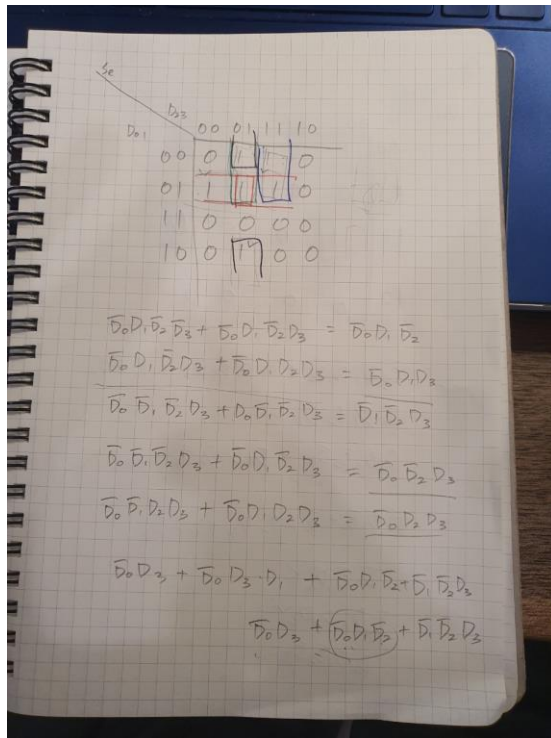 Se
D₂₃
D₀₁ 00 01 11 10
00 0 1 1 0
01 1 1 1 0
11 0 0 0 0
10 0 1 0 0
D̅₀D₁D̅₂D̅₃ + D̅₀D₁D̅₂D₃ = D̅₀D₁D̅₂
D̅₀D₁D̅₂D₃ + D̅₀D₁D₂D₃ = D̅₀D₁D₃
D̅₀D̅₁D̅₂D₃ + D₀D̅₁D̅₂D₃ = D̅₁D̅₂D₃
D̅₀D̅₁D̅₂D₃ + D̅₀D₁D̅₂D₃ = D̅₀D̅₂D₃
D̅₀D̅₁D₂D₃ + D̅₀D₁D₂D₃ = D̅₀D₂D₃
D̅₀D₃ + D̅₀D₃·D₁ + D̅₀D₁D̅₂ + D̅₁D̅₂D₃
D̅₀D₃ + D̅₀D₁D̅₂ + D̅₁D̅₂D₃